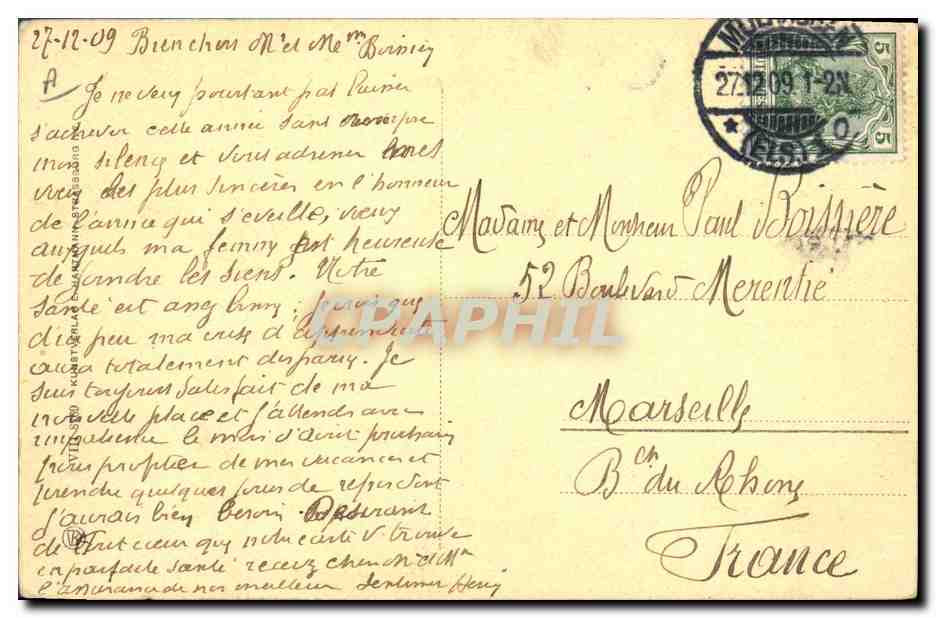 27-12-09 Bien chers Mr et Mme
A
Je ne veux pourtant pas laisser
s'achever cette année sans rompre
mon silence et vous adresser nos
voeux les plus sincères en l'honneur
de l'année qui s'éveille, voeux
auxquels ma femme est heureuse
de joindre les siens. Notre
santé est
d'ici peu ma
aura totalement disparu. Je
suis toujours satisfait de ma
nouvelle place et j'attends avec
impatience le mois d'août prochain
pour profiter de mes vacances et
prendre quelques jours de repos dont
j'aurais bien besoin. Désirant
de tout coeur que notre carte v. trouve
en parfaite santé recevez chers Mr et Mme
l'assurance de nos meilleurs sentiments Henry
KUNSTVERLAG E. HARTMANN, STRASSBURG
MÜLHAUSEN
27.12.09 1-2N
(ELS.) 1
5
5
Madame et Monsieur Paul Boissière
52 Boulevard Merentié
Marseille
Bch du Rhone
France
CPAPHIL